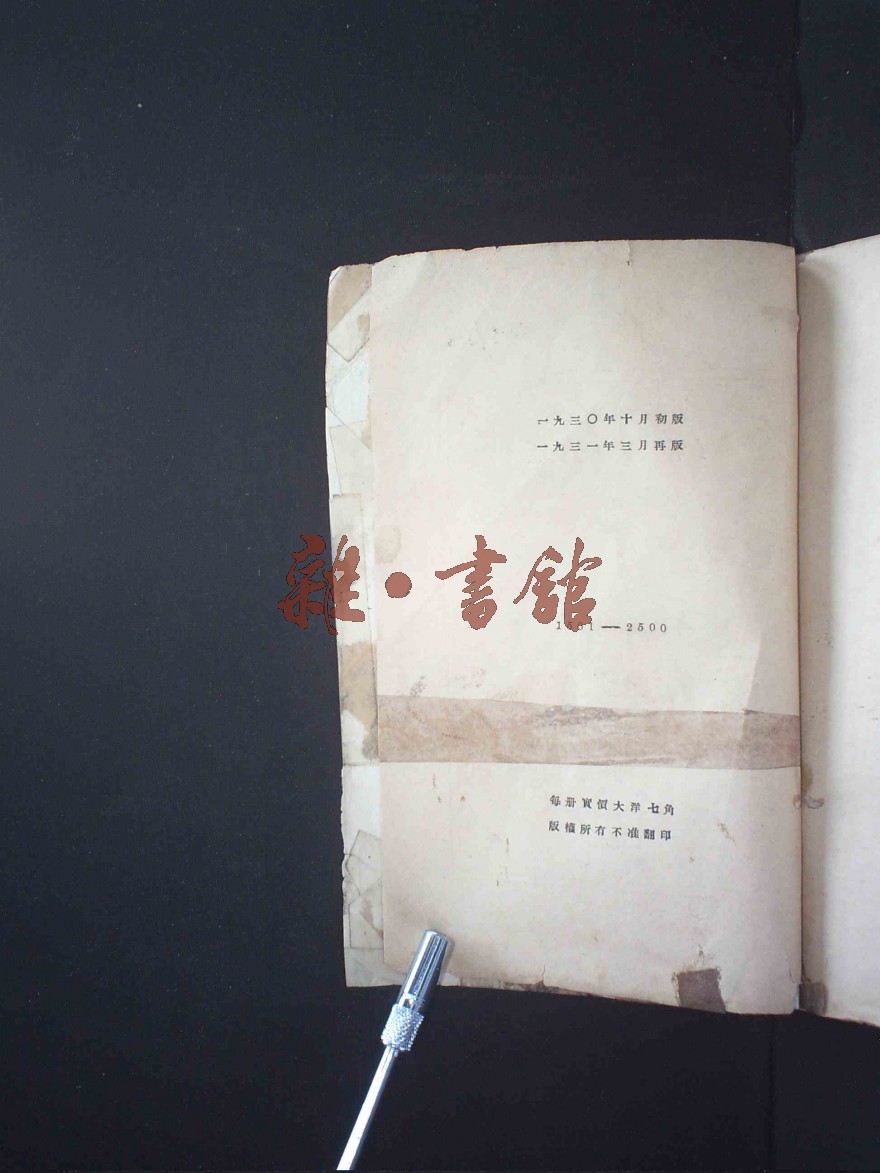 一九三〇年十月初版
一九三一年三月再版
雜·書館
1501—2500
每册實價大洋七角
版權所有不准翻印